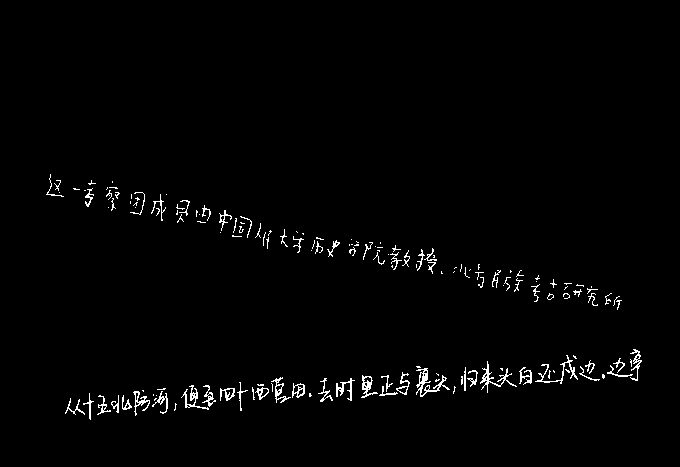 这一考察团成员由中国人民大学历史学院教授、北方民族考古研究所
从十五北防河,便至四十西营田.去时里正与裹头,归来头白还戍边.边亭